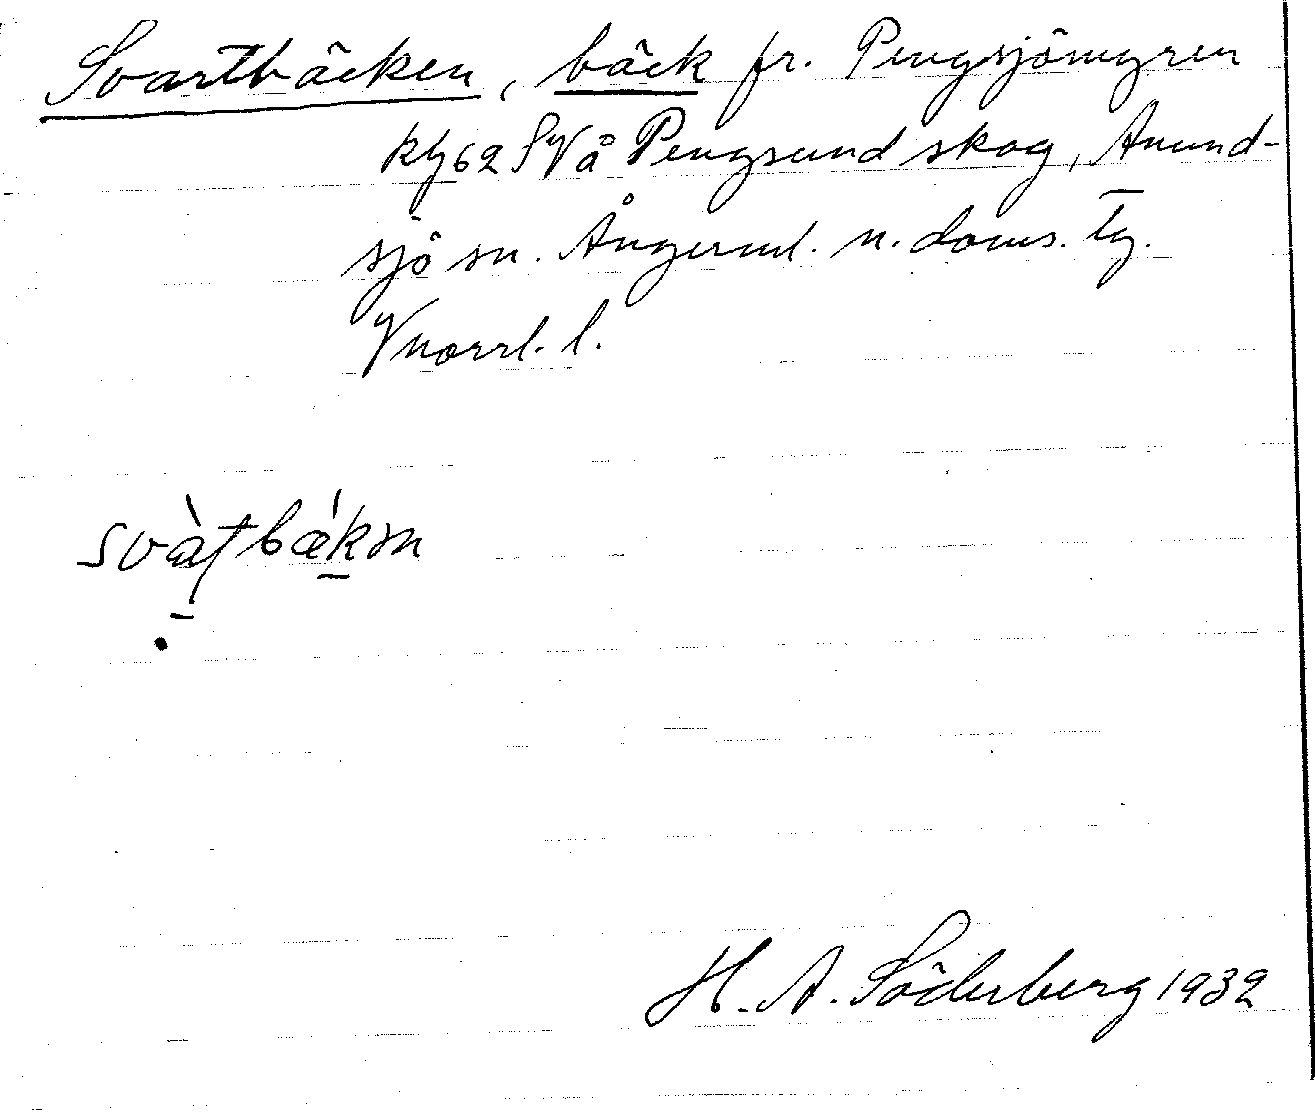 Svartbäcken, bäck fr. Pengsjömyren
kbl 62 SVå Pengsund skog, Anund-
sjö sn. Ångerml. n. doms. tg.
Vnorrl. l.
svàtbækən
H. A. Söderberg 1932